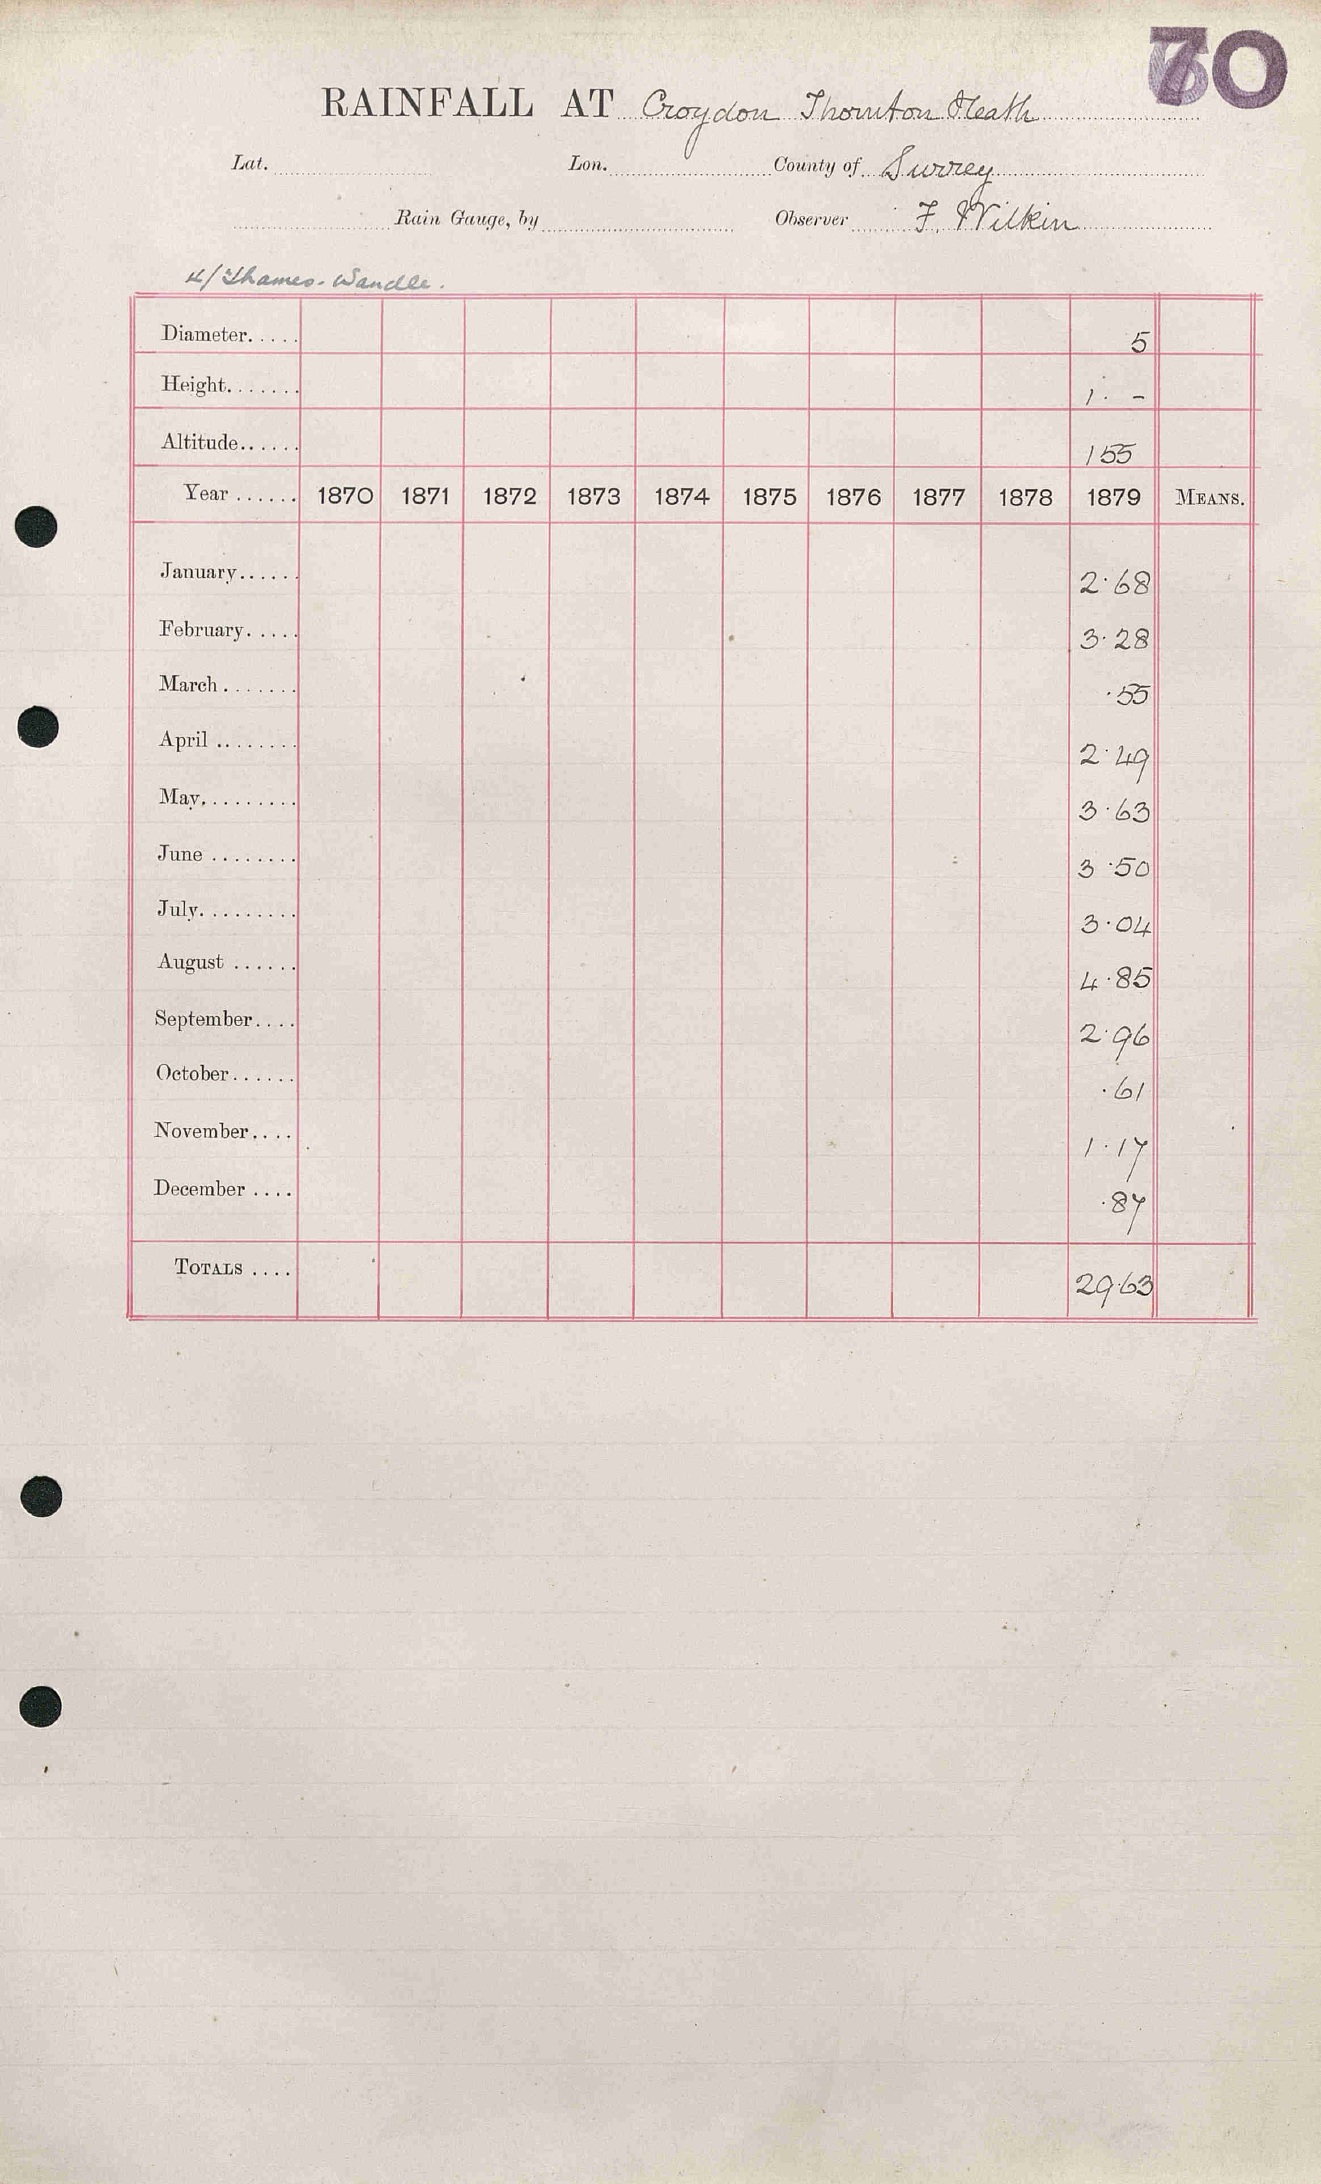 70
RAINFALL AT Croydon Thornton Heath
Lat. Lon. County of Surrey
Rain Gauge, by Observer F. Wilkin
4/Thames-Wandle.
Diameter..... 5
Height....... 1. -
Altitude...... 155
Year ...... 1870 1871 1872 1873 1874 1875 1876 1877 1878 1879 MEANS.
January...... 2.68
February..... 3.28
March....... .55
April ........ 2.49
May......... 3.63
June ........ 3.50
July......... 3.04
August ...... 4.85
September.... 2.96
October...... .61
November.... 1.17
December .... .87
TOTALS .... 29.63